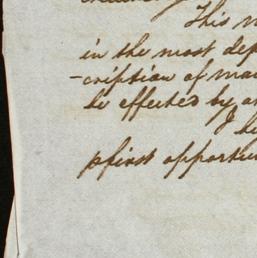 This
in the most dep
-cription of ma
be effected by a
I
pfirst opportu